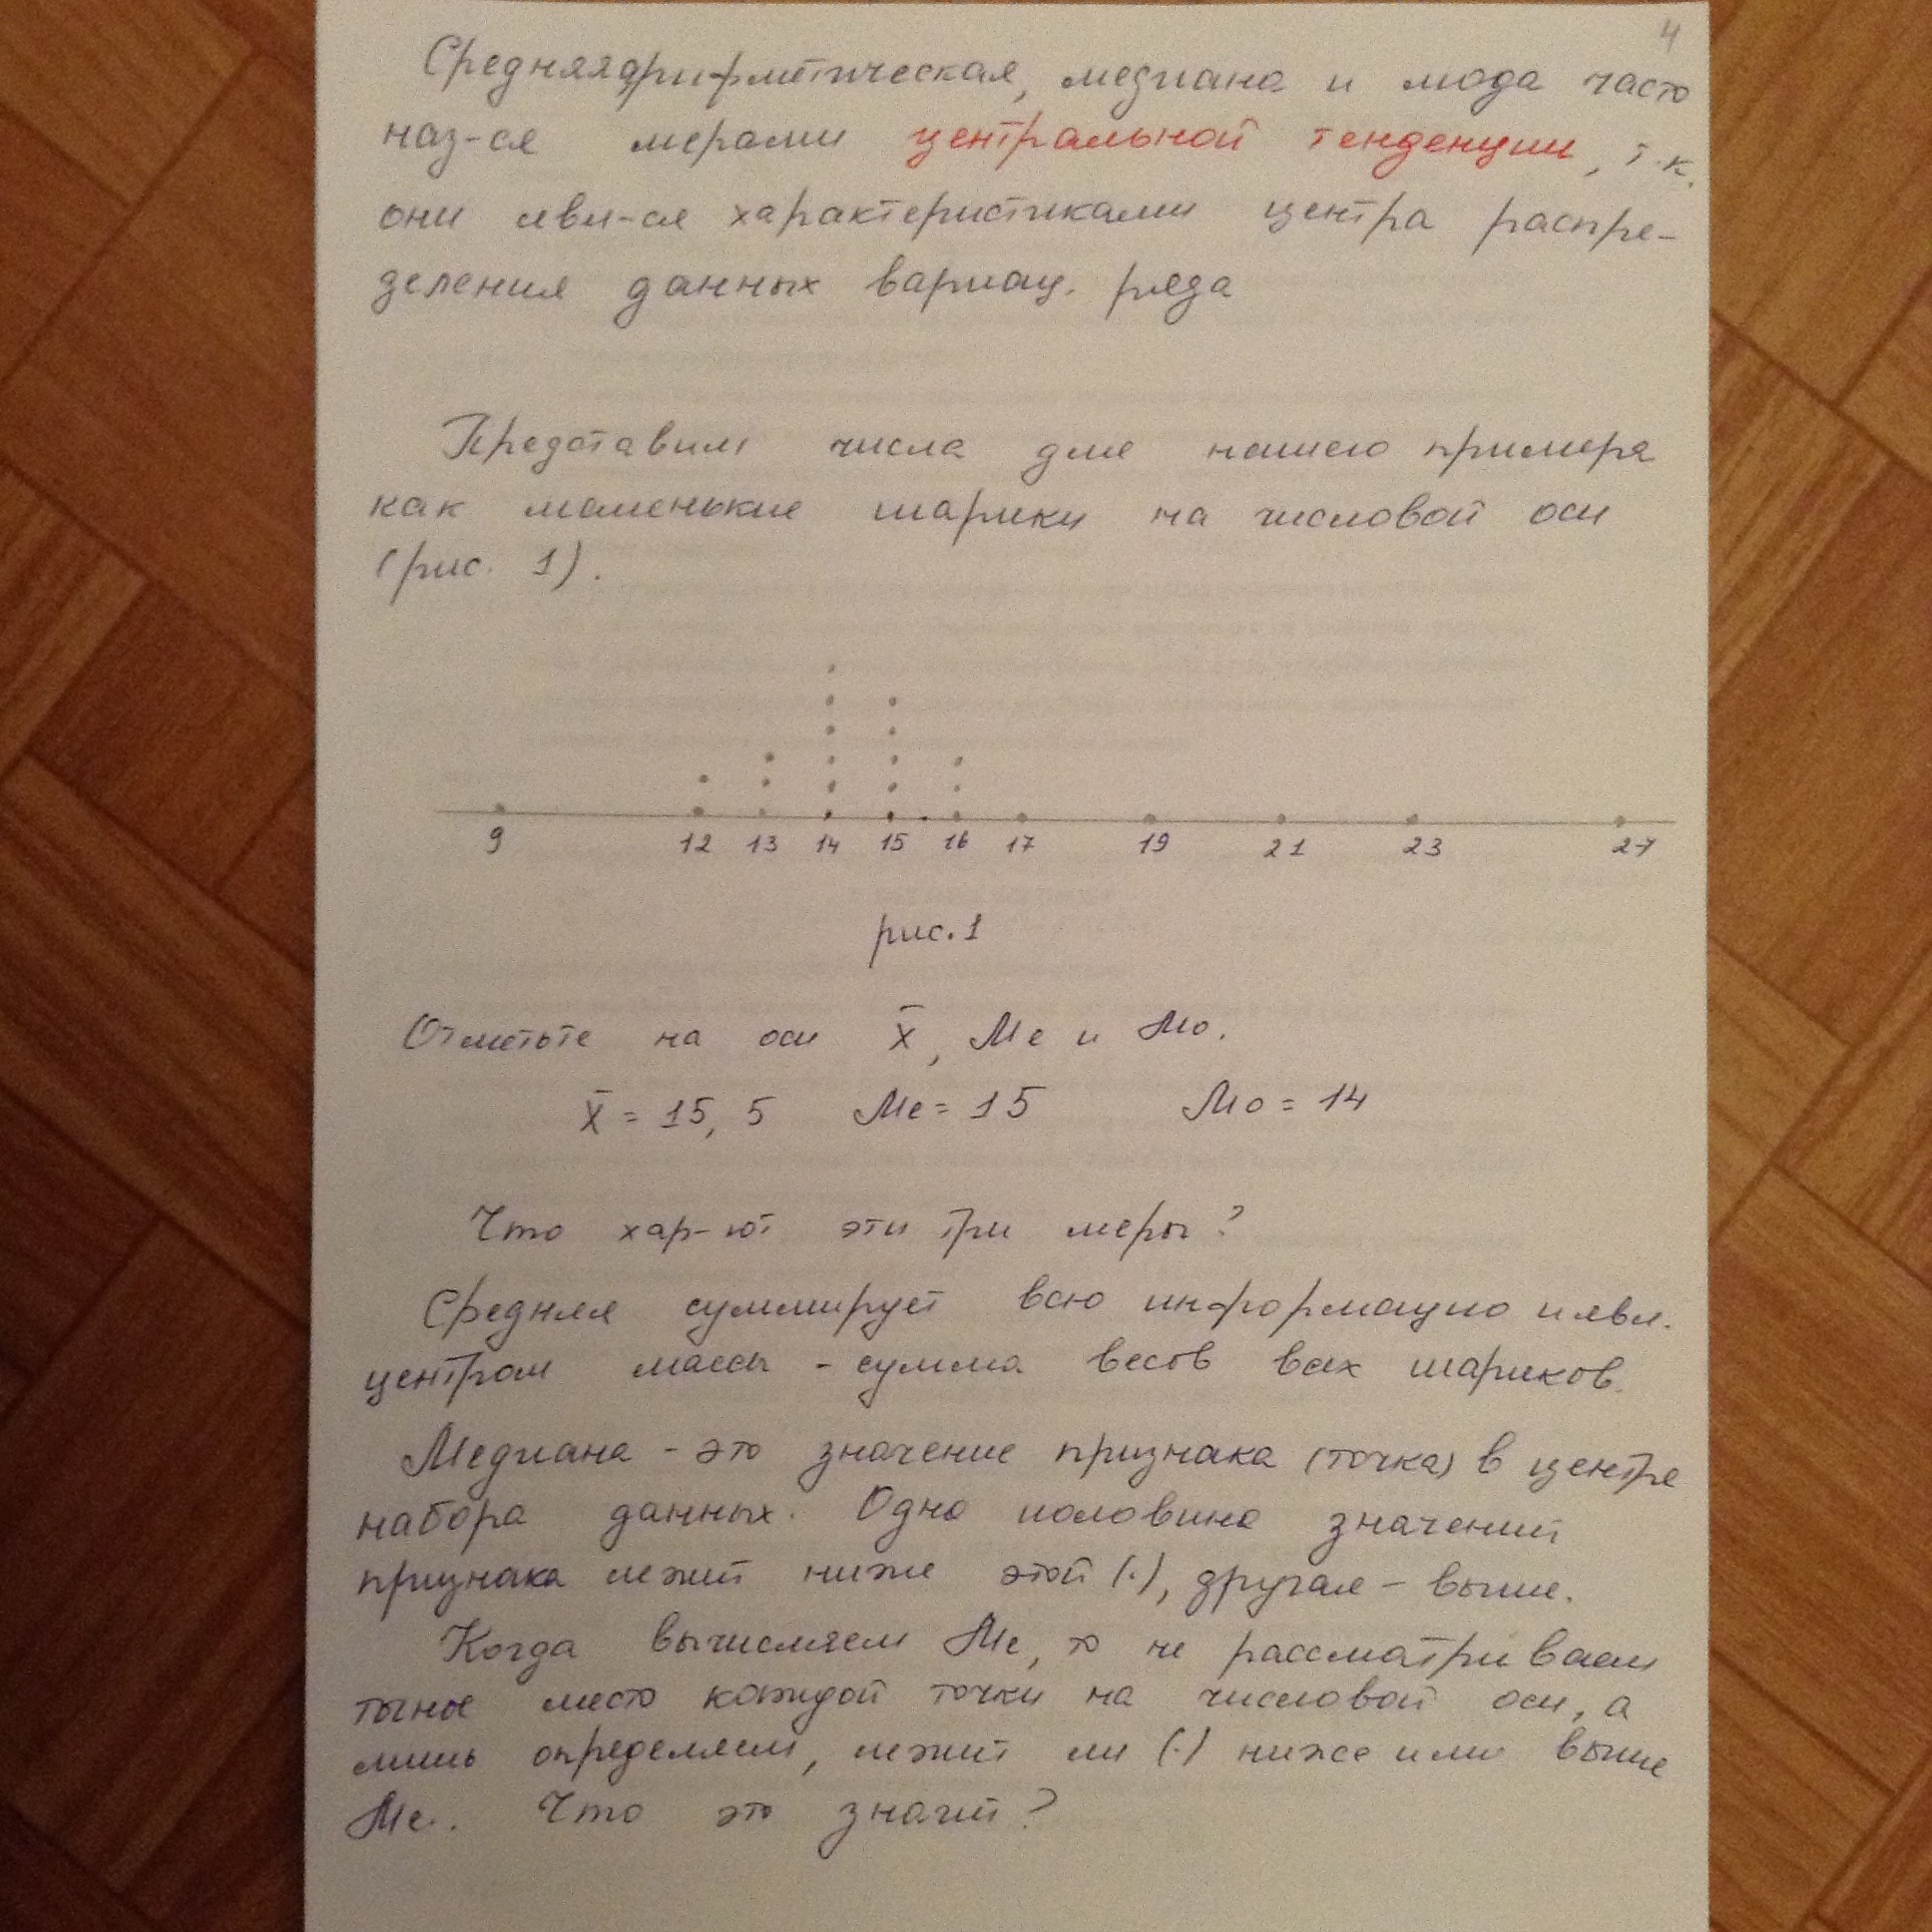 4
Средняя арифметическая, медиана и мода часто
наз-ся мерами центральной тенденции, т.к.
они явл-ся характеристиками центра распре-
деления данных вариац. ряда
Представим числа для нашего примера
как маленькие шарики на числовой оси
(рис. 1).
9 12 13 14 15 16 17 19 21 23 27
рис. 1
Отметьте на оси x̄, Me и Mo.
x̄ = 15,5 Me = 15 Mo = 14
Что хар-ют эти три меры?
Средняя суммирует всю информацию и явл.
центром массы - сумма весов всех шариков.
Медиана - это значение признака (точка) в центре
набора данных. Одна половина значений
признака лежит ниже этой (·), другая - выше.
Когда вычисляем Me, то не рассматриваем
точное место каждой точки на числовой оси, а
лишь определяем, лежит ли (·) ниже или выше
Me. Что это значит?